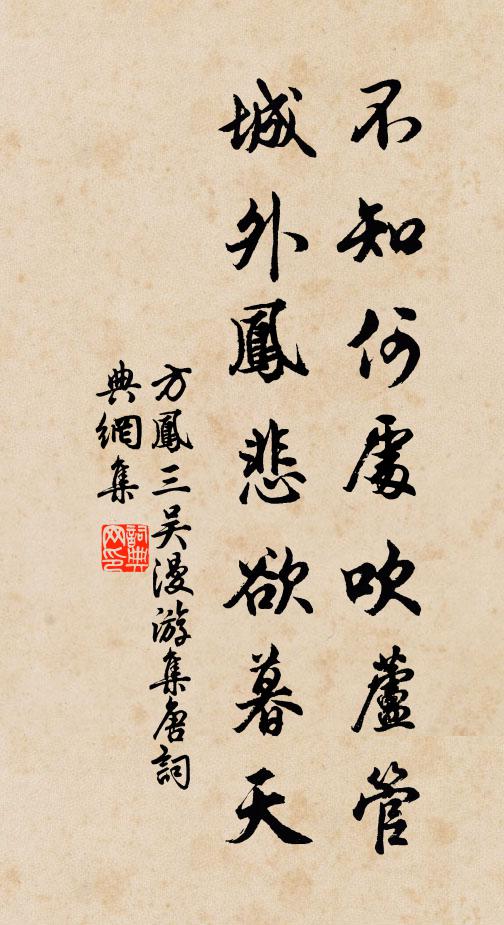 不知何處吹蘆管
城外鳳悲欲暮天
方鳳三吴漫游集唐詞
典網集
詞典
网印